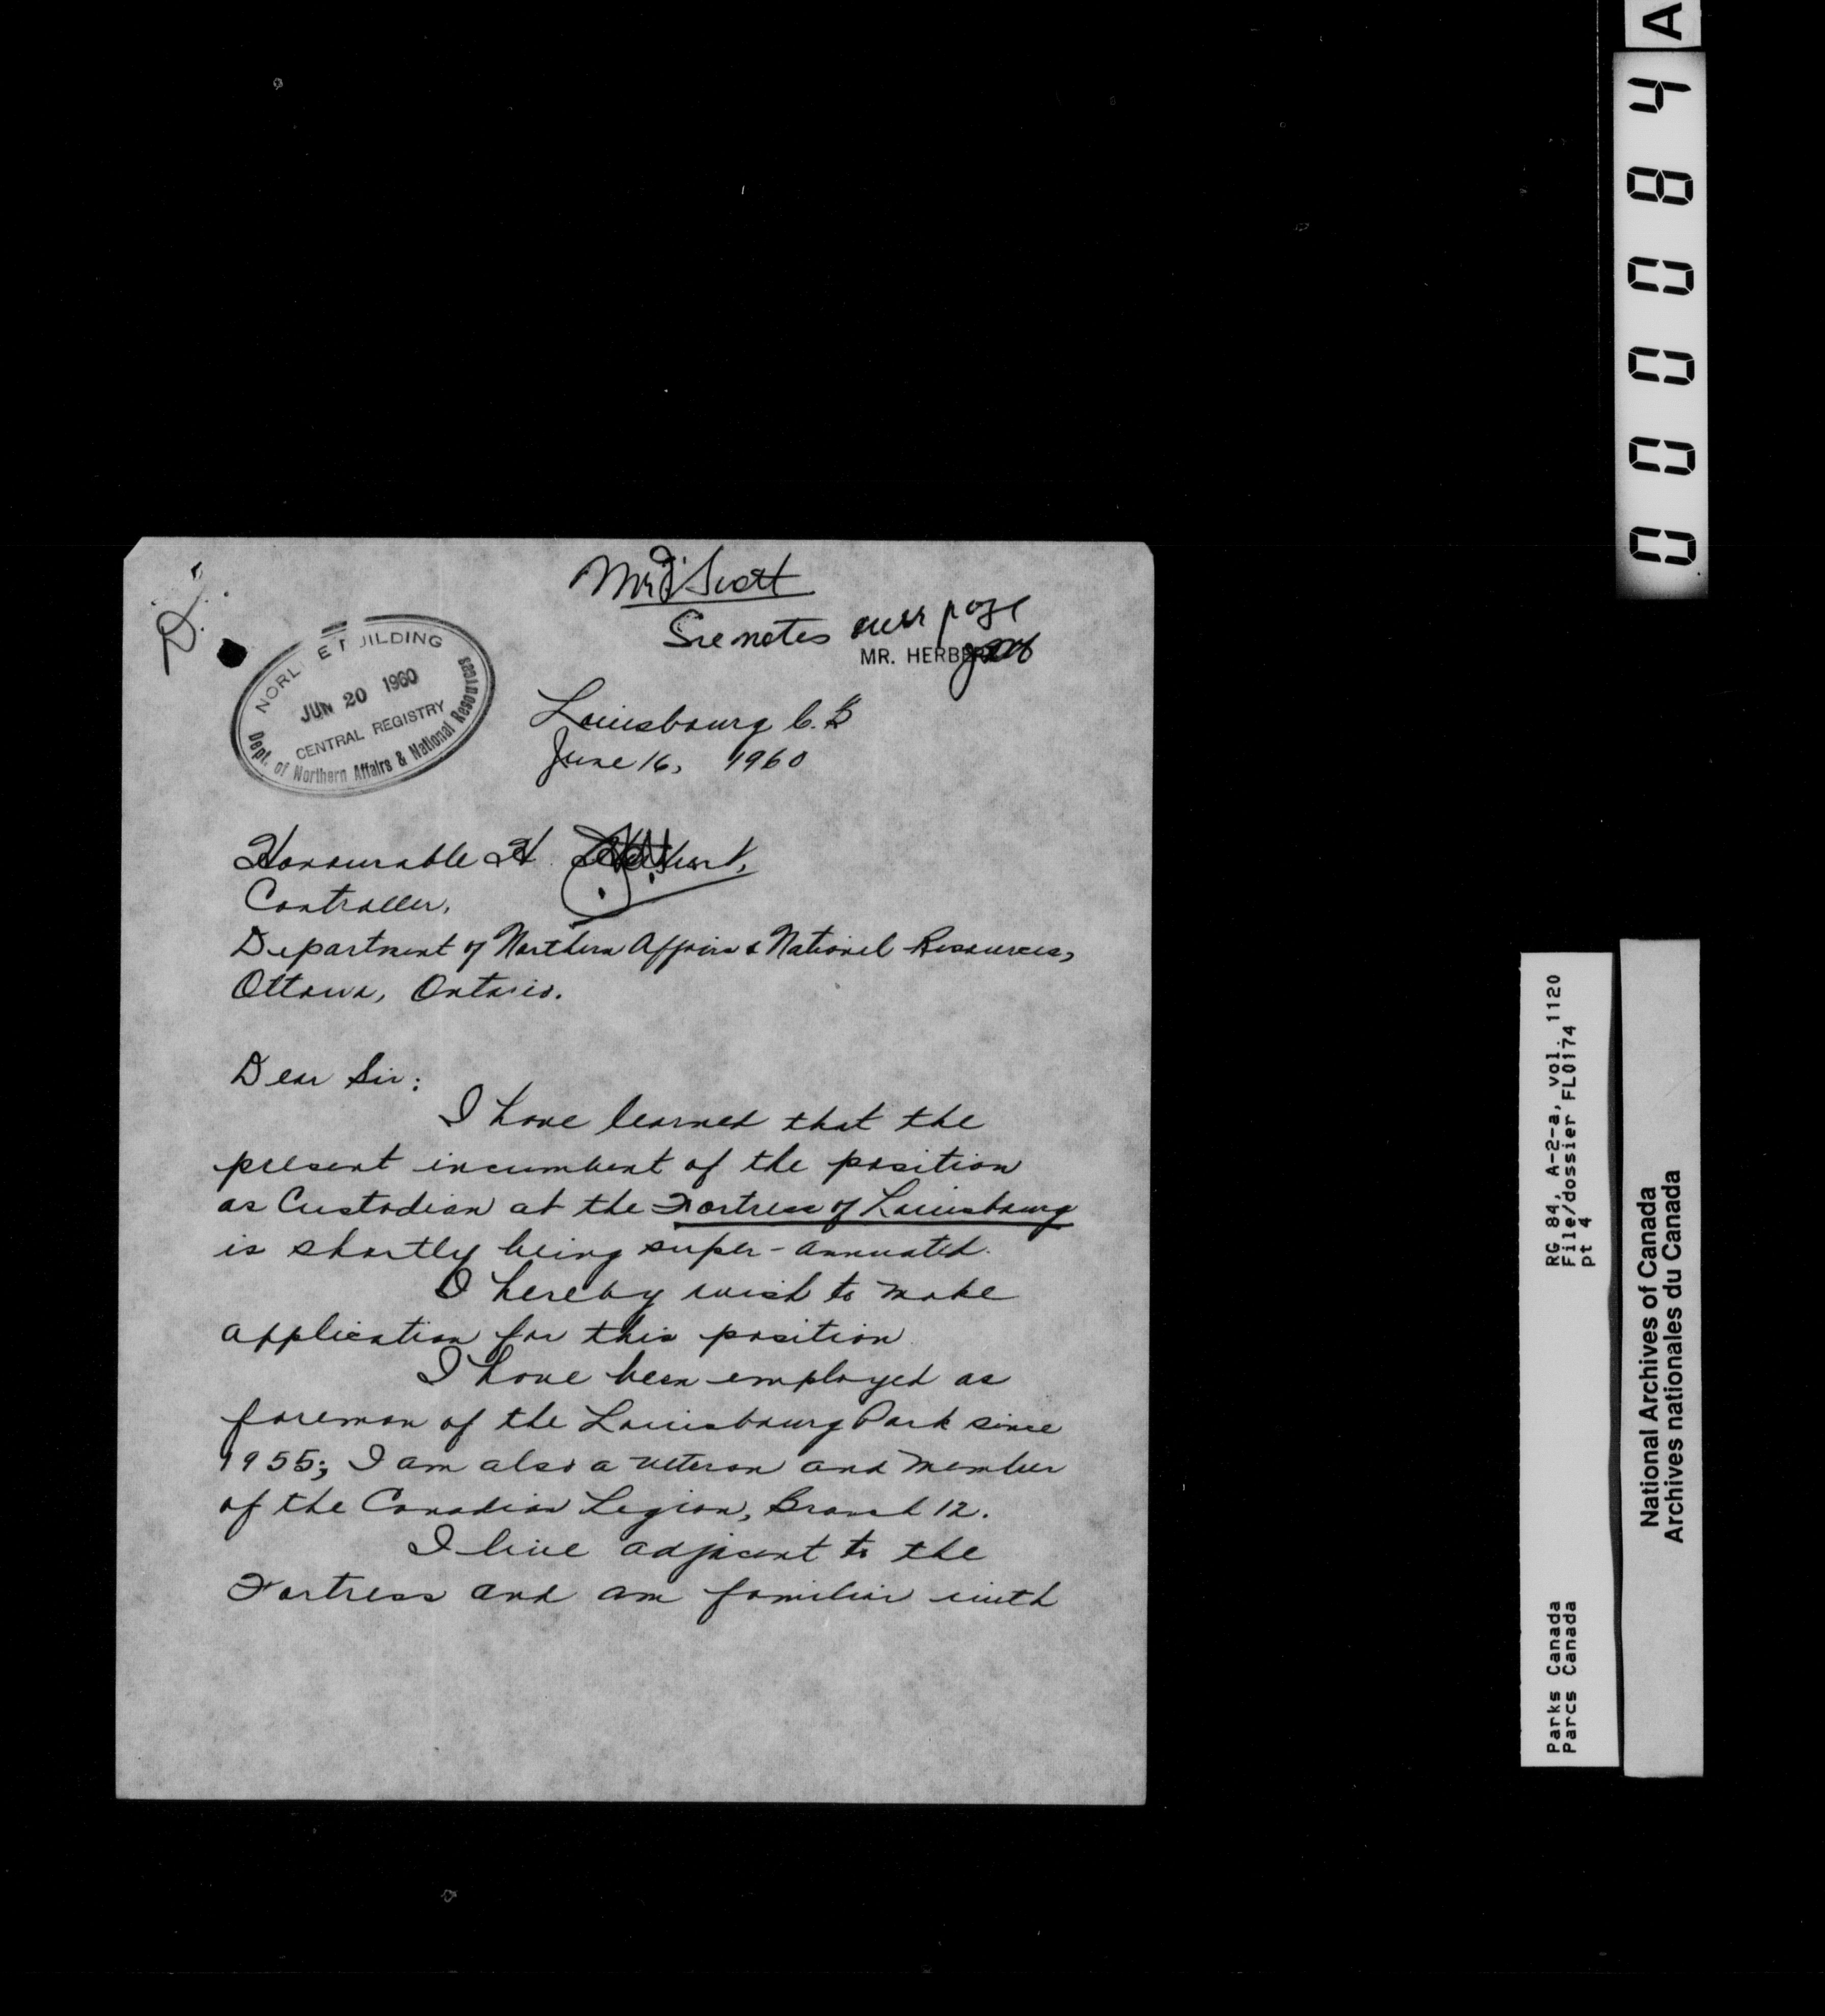 Mr. Scott
See notes over page
MR. HERBERT
NORLITE BUILDING
JUN 20 1960
CENTRAL REGISTRY
Dept. of Northern Affairs & National Resources
Louisbourg C.B
June 16, 1960
Honourable H.
Controller,
Department of Northern Affairs & National Resources,
Ottawa, Ontario.
Dear Sir:
I have learned that the
present incumbent of the position
as Custodian at the Fortress of Louisbourg
is shortly being super-annuated.
I hereby wish to make
application for this position.
I have been employed as
foreman of the Louisbourg Park since
1955; I am also a veteran and member
of the Canadian Legion, Branch 12.
I live adjacent to the
Fortress and am familiar with
000084 A
RG 84, A-2-a, vol. 1120
File/dossier FL0174
pt 4
Parks Canada
Parcs Canada
National Archives of Canada
Archives nationales du Canada